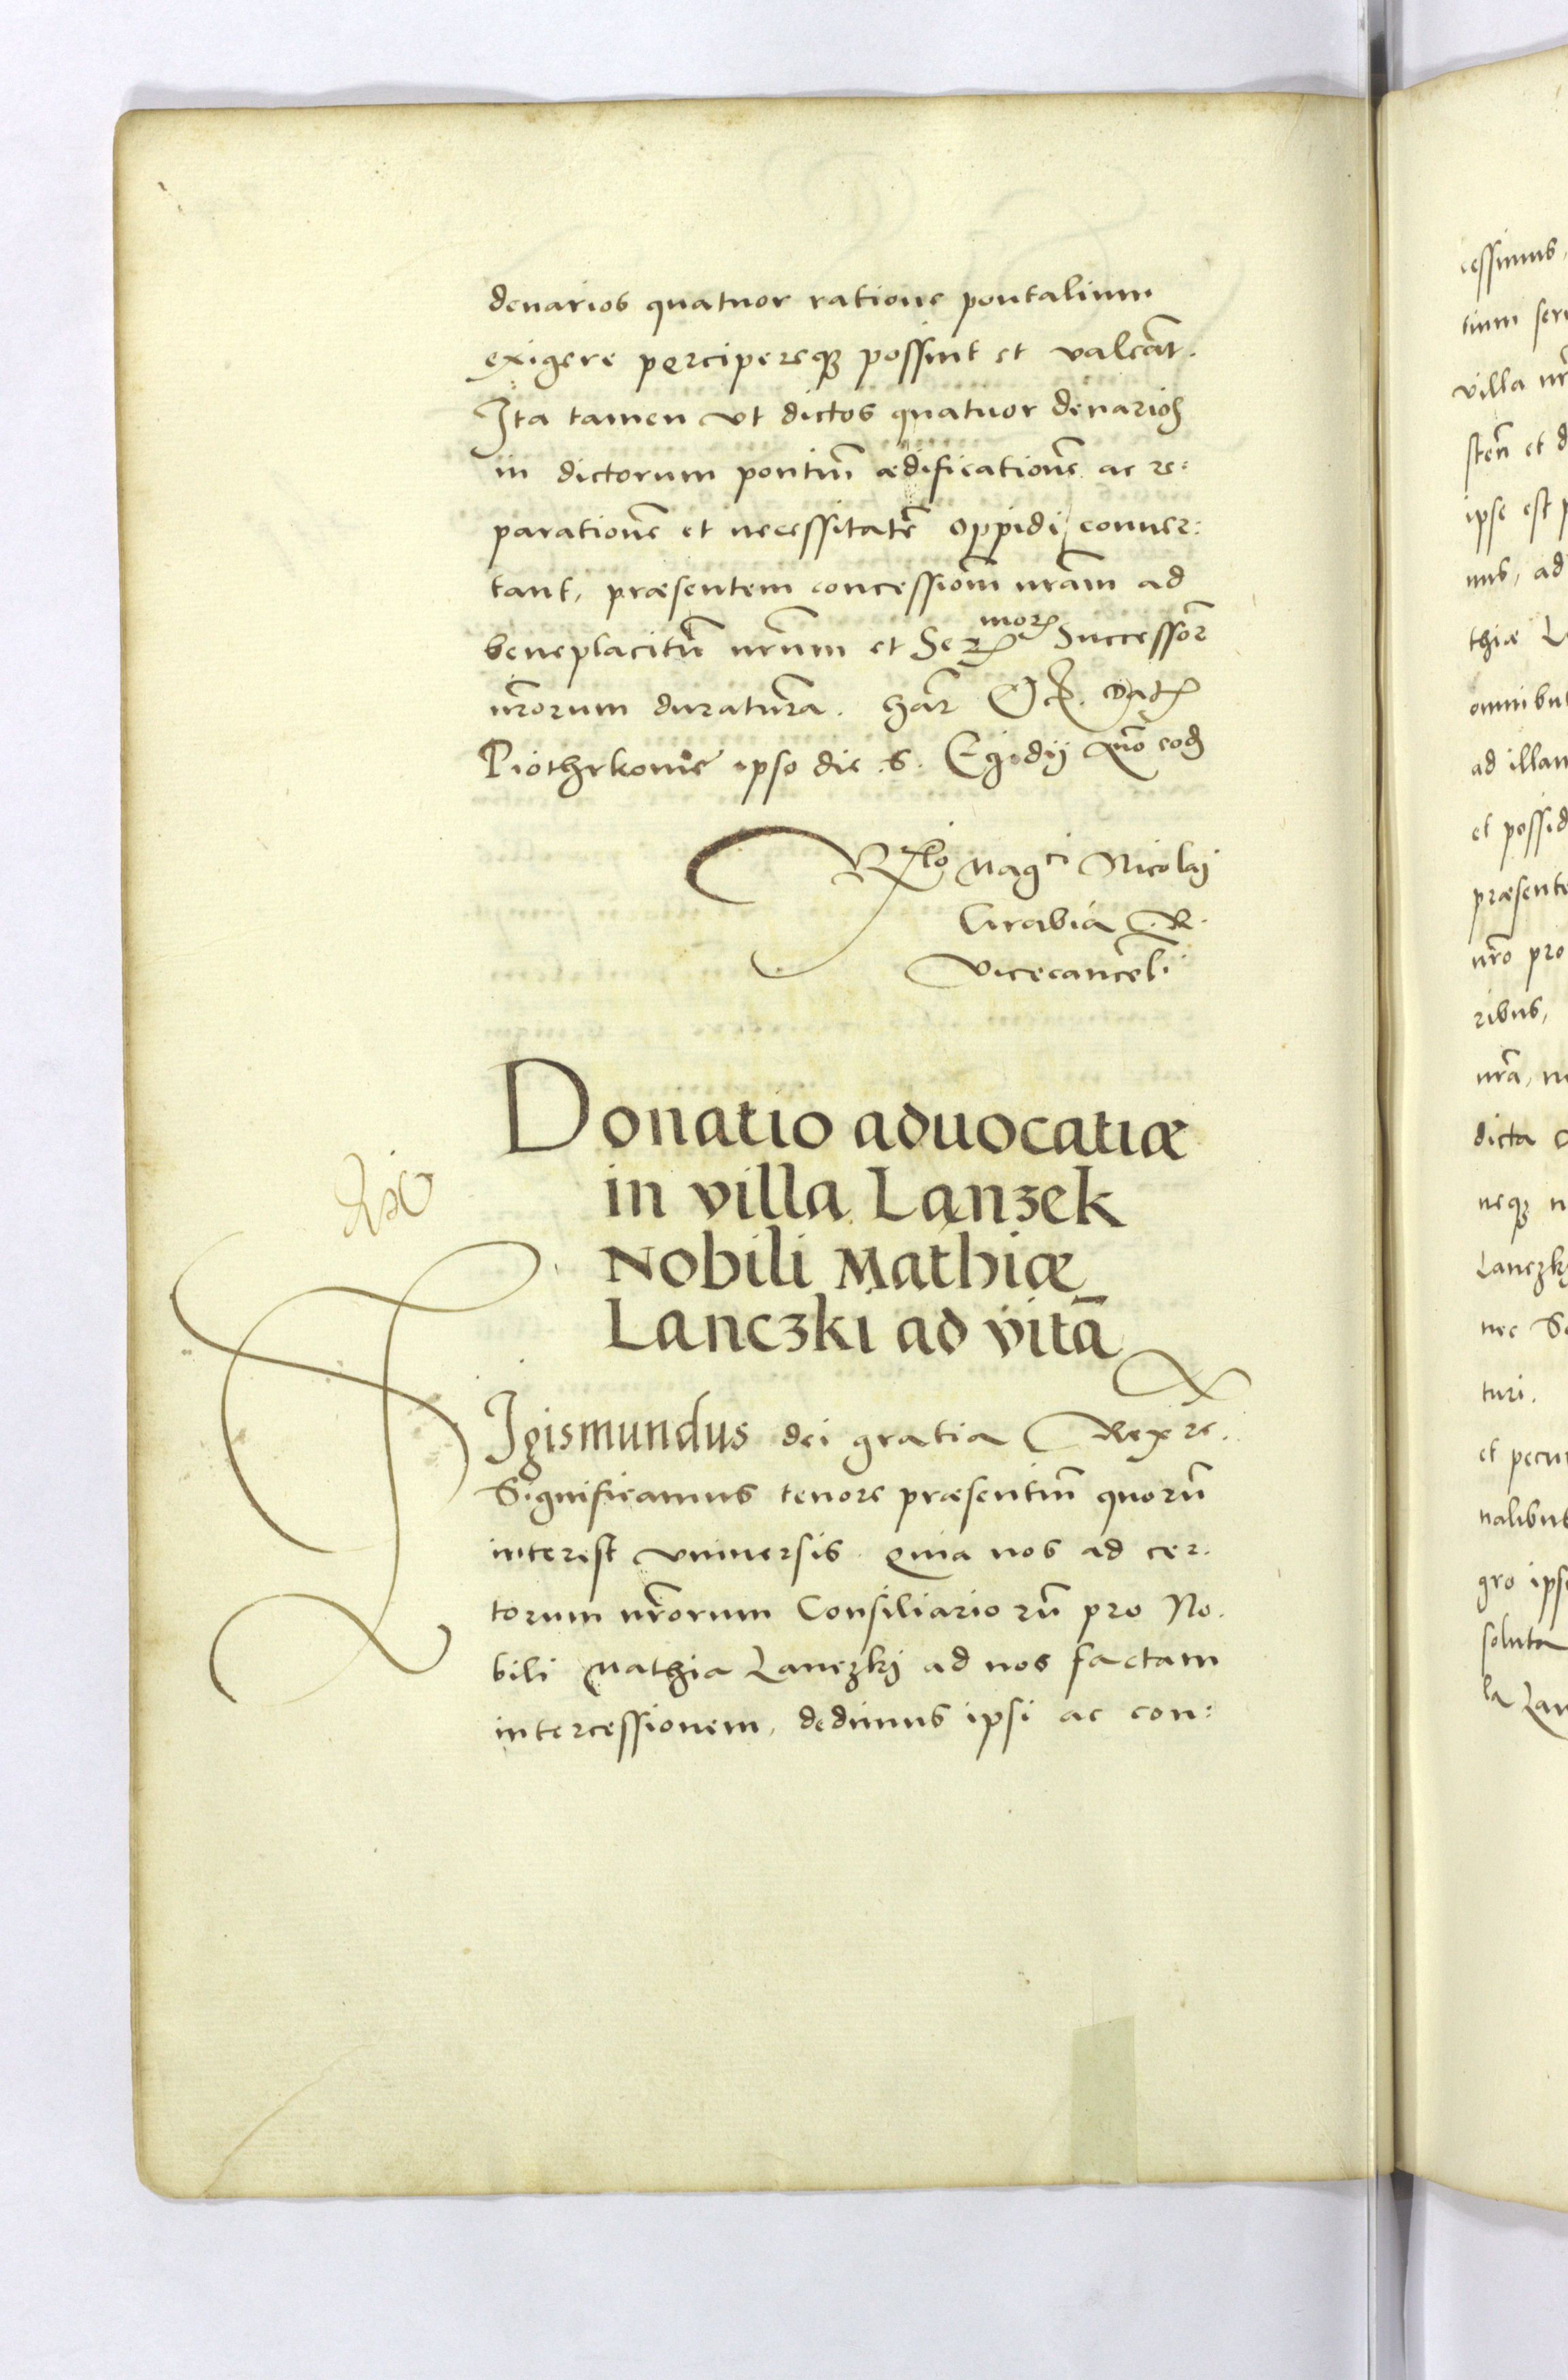 denarios quatuor ratione pontalium
exigere percipereqꝫ possint et valeāt.
Ita tamen vt dictos quatuor denarios
in dictorum pontiū ædificationē ac re:
parationē et necessitatē oppidi conuer:
tant, præsentem concessionē nr̃am ad
beneplacitū nr̃um et Ser morꝫ Successor̃
nr̃orum duraturā. Har̃ Datꝫ
Piothrkouiæ ipso die .S. Egidij eod
R̃lo Magci Nicolaj
Grabia R.
Vicecancel.
Donatio aduocatiæ
in villa Lanzek
Nobili Mathiæ
Lanczki ad vitā
SIgismundus dei gratia Rex ꝛc.
Significamus tenore præsentiū quorū
interest vniuersis. Quia nos ad cer:
torum nr̃orum Consiliariorū pro No.
bili Mathia Lanczkj ad nos factam
intercessionem, dedimus ipsi ac con:
cessimus,
villa
et
ipse est
nus, ad
thiæ
omnibus
ad illam
et
nr̃o pro
ribus,
nr̃a,
dicta
neqꝫ
nec
turi.
et
nalibus
gro
soluta
la